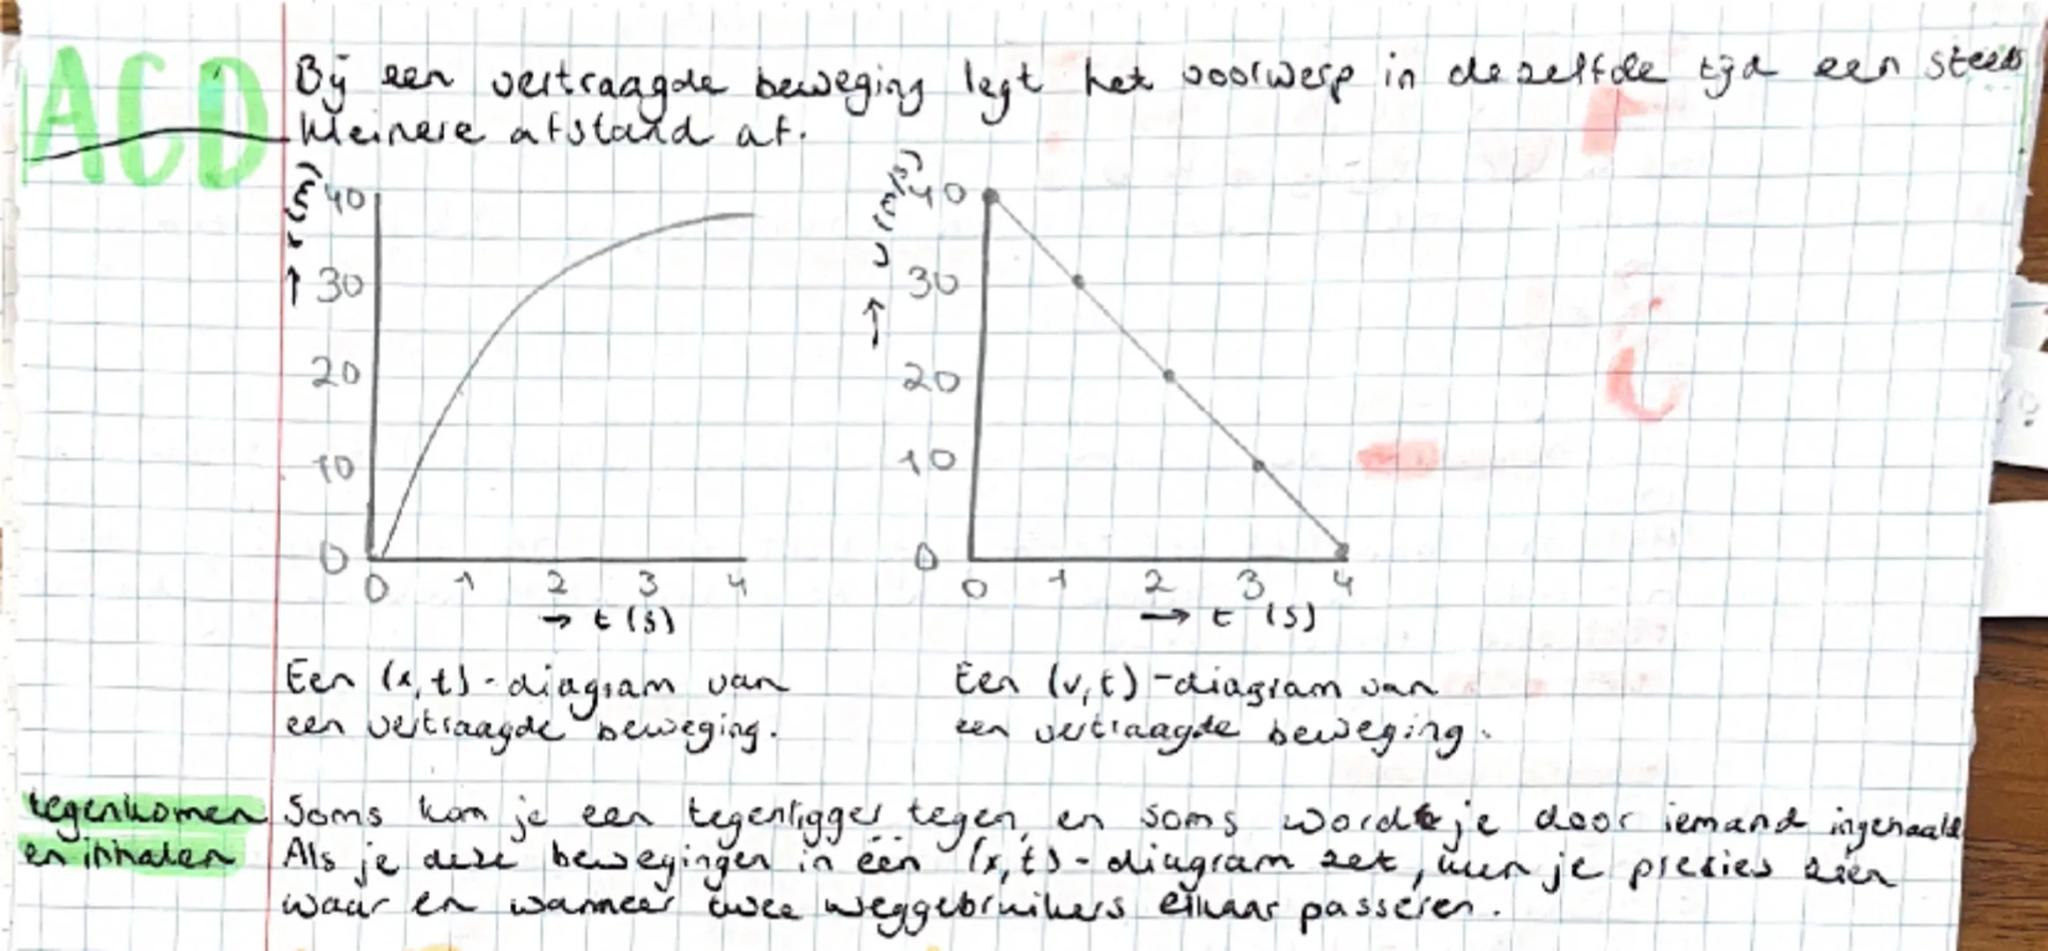 ACD
Bij een vertraagde beweging legt het voorwerp in dezelfde tijd een steeds
kleinere afstand af.
↑ x (m)
40
30
20
10
0
0 1 2 3 4
→ t (s)
↑ v (m/s)
40
30
20
10
0
0 1 2 3 4
→ t (s)
Een (x,t)-diagram van
een vertraagde beweging.
Een (v,t)-diagram van
een vertraagde beweging.
tegenkomen
en inhalen
Soms kom je een tegenligger tegen, en soms word je door iemand ingehaald
Als je deze bewegingen in één (x,t)-diagram zet, kun je precies zien
waar en wanneer twee weggebruikers elkaar passeren.